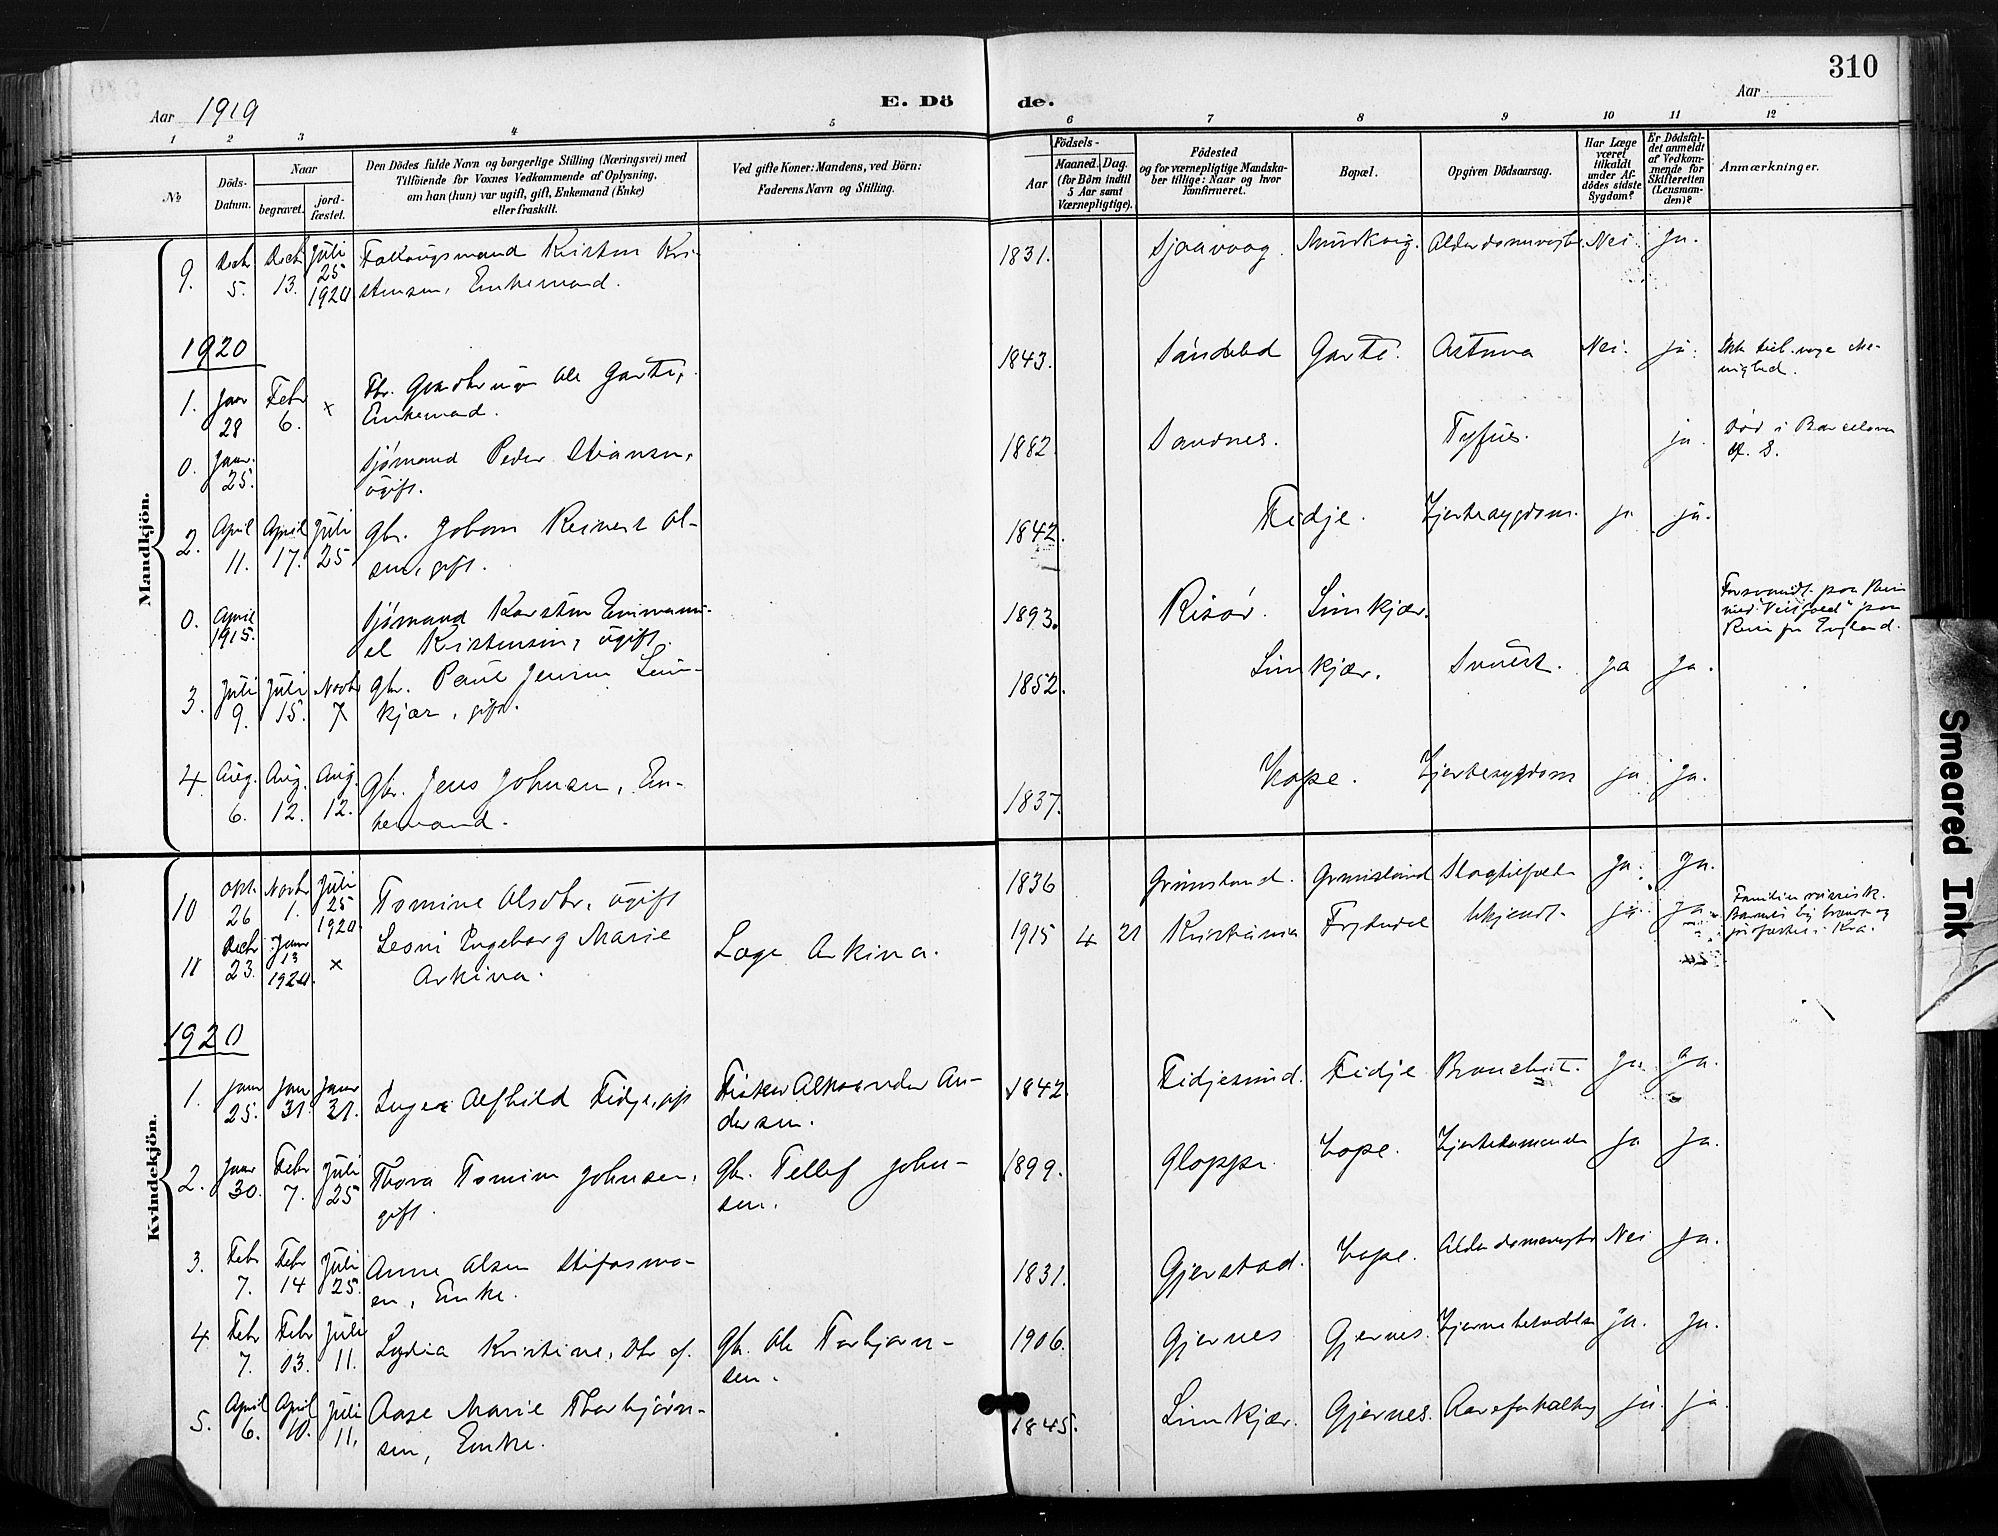 310
Aar 1919
E. Döde.
Aar
1 2 3 4 5 6 7 8 9 10 11 12
№
Döds-Datum.
Naar
begravet.
jord-fæstet.
Den Dödes fulde Navn og borgerlige Stilling (Næringsvei) med
Tilföiende for Voxnes Vedkommende af Oplysning,
om han (hun) var ugift, gift, Enkemand (Enke)
eller fraskilt.
Ved gifte Koner: Mandens, ved Börn:
Faderens Navn og Stilling.
Födsels-
Aar
Maaned. Dag.
(for Börn indtil
5 Aar samt
Værnepligtige).
Födested
og for værnepligtige Mandska-
ber tillige: Naar og hvor
konfirmeret.
Bopæl.
Opgiven Dödsaarsag.
Har Læge
været
tilkaldt
under Af-
dödes sidste
Sygdom?
Er Dödsfal-
det anmeldt
af Vedkom-
mende for
Skifteretten
(Lensman-
den)?
Anmærkninger.
Mandkjön.
9. Decbr 5. Decbr 13. Juli 25 1920 Kristen Kri-
stensen, Enkemand. 1831. Sjaavaag. Alderdomssvaghe Nei. Ja.
1920
1. Janr 28 Febr 6. x Ole Garte,
Enkemand. 1843. Søndeled Garte. Astma Nei. ja.
0. Janr. 25. Sjømand Peder Stiansen,
ugift. 1882. Sandnes. Tyfus. ja. Død i Barcelona
2. April 11. April 17. Juli 25 Gbr. Johan Reinert Ol-
sen, gift. 1842. Fidje. Hjertesygdom. ja ja.
0. April 1915. Sjømand Karsten Emmanu-
el Kristensen, ugift. 1893. Risør. Limkjær. Forsvundt paa
Reise fra England.
3. Juli 9. Juli 15. Novbr 7 Gbr. Paul Jensen Lim-
kjær, gift. 1852. Limkjær. ja ja.
4. Aug. 6. Aug. 12. Aug. 12. Gbr. Jens Johnsen, En-
kemand. 1837. Hope. Hjertesygdom ja. ja.
Kvindekjön.
10 Okt. 26 Novbr 1. Juli 25 1920 Tomine Olsdtr, ugift 1836 Grimsland. Grimsland Slagtilfælde Ja. Ja.
11 Decbr 23. Janr 13 1920. x Ingeborg Marie
Arkina. Læge Arkina. 1915 4 21 Kristiania Frydendal Ukjendt. ja. ja
1920
1. Janr 25. Jan 31. Janr 31. Alfhild Fidje, gift Fisker Alexander An-
dersen. 1842. Fidjesund. Fidje Bronchit. Ja. Ja.
2. Janr 30. Febr 7. Juli 25 Thora Tomine Johnsen,
gift. Gbr. Tellef John-
sen. 1899. Gloppe. Hope. ja ja.
3. Febr 7. Febr 14 Juli 25. Anne Olsen Stifosmo-
en, Enke. 1831. Gjerstad. Hope. Alderdomssvaghe Nei Ja.
4 Febr 7. Febr 13. Juli 11. Lydia Kristine, Dtr af. Gbr. Ole Torbjørn-
sen. 1906. Gjernes Gjernes. Hjernebetændelse ja. Ja.
5. April 6. April 10. Juli 11. Aase Marie Thorbjørn-
sen, Enke. 1845. Limkjær. Gjernes. Aareforkalkng ja. ja.
Smeared Ink